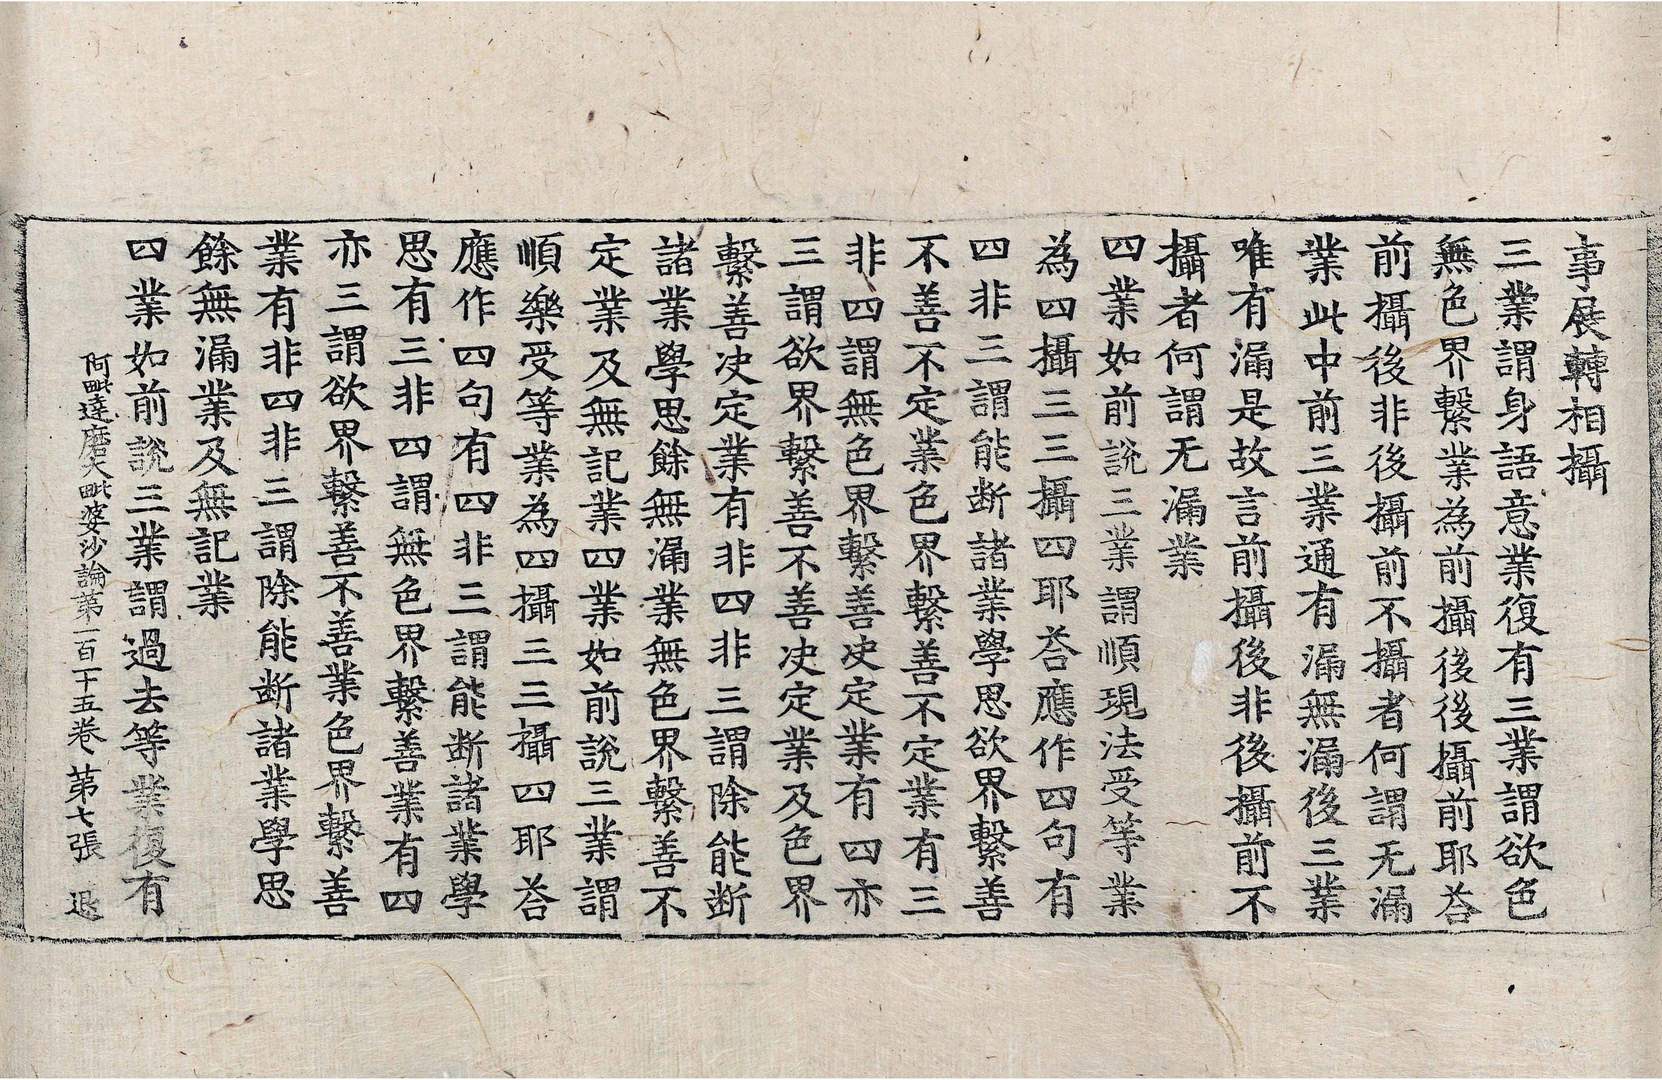 事展轉相攝
三業謂身語意業復有三業謂欲色
無色界繫業為前攝後後攝前耶荅
前攝後非後攝前不攝者何謂无漏
業此中前三業通有漏無漏後三業
唯有漏是故言前攝後非後攝前不
攝者何謂无漏業
四業如前說三業謂順現法受等業
為四攝三三攝四耶荅應作四句有
四非三謂能断諸業學思欲界繫善
不善不定業色界繫善不定業有三
非四謂無色界繫善决定業有四亦
三謂欲界繫善不善决定業及色界
繫善决定業有非四非三謂除能断
諸業學思餘無漏業無色界繫善不
定業及無記業四業如前說三業謂
順樂受等業為四攝三三攝四耶荅
應作四句有四非三謂能断諸業學
思有三非四謂無色界繫善業有四
亦三謂欲界繫善不善業色界繫善
業有非四非三謂除能断諸業學思
餘無漏業及無記業
四業如前說三業謂過去等業復有
阿毗達磨大毗婆沙論第一百十五卷 第七張 退